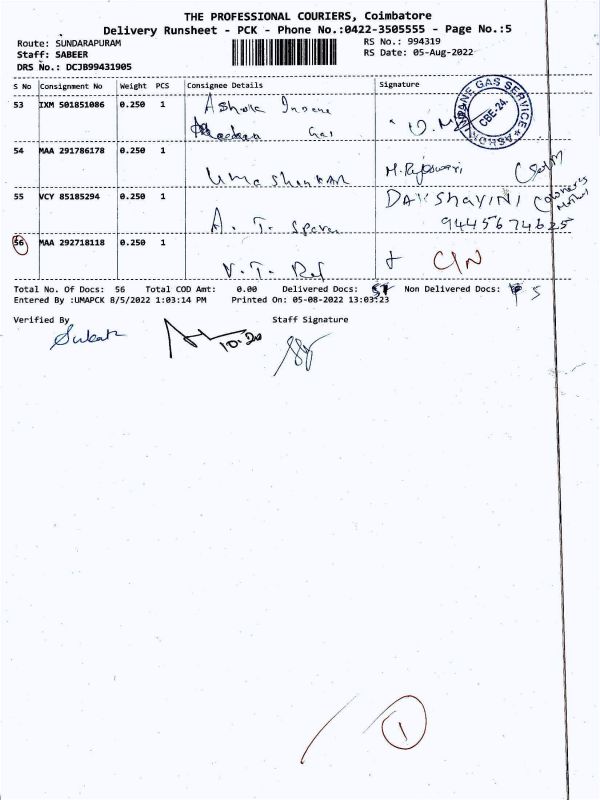 THE PROFESSIONAL COURIERS, Coimbatore
Delivery Runsheet - PCK - Phone No.:0422-3505555 - Page No.:5
Route: SUNDARAPURAM
RS No.: 994319
Staff: SABEER
RS Date: 05-Aug-2022
DRS No.: DCJB99431905
S No Consignment No Weight PCS Consignee Details Signature
53 IXM 501851086 0.250 1 Ashok
Gas
INDANE GAS SERVICE CBE-24.
54 MAA 291786178 0.250 1
Umashankar
55 VCY 85185294 0.250 1 DAKShAYINI
A. T. 9445674625
56 MAA 292718118 0.250 1
V. T. Ref C/N
Total No. Of Docs: 56 Total COD Amt: 0.00 Delivered Docs: Non Delivered Docs: 5
Entered By :UMAPCK 8/5/2022 1:03:14 PM Printed On: 05-08-2022 13:03:23
Verified By Staff Signature
10.20
1